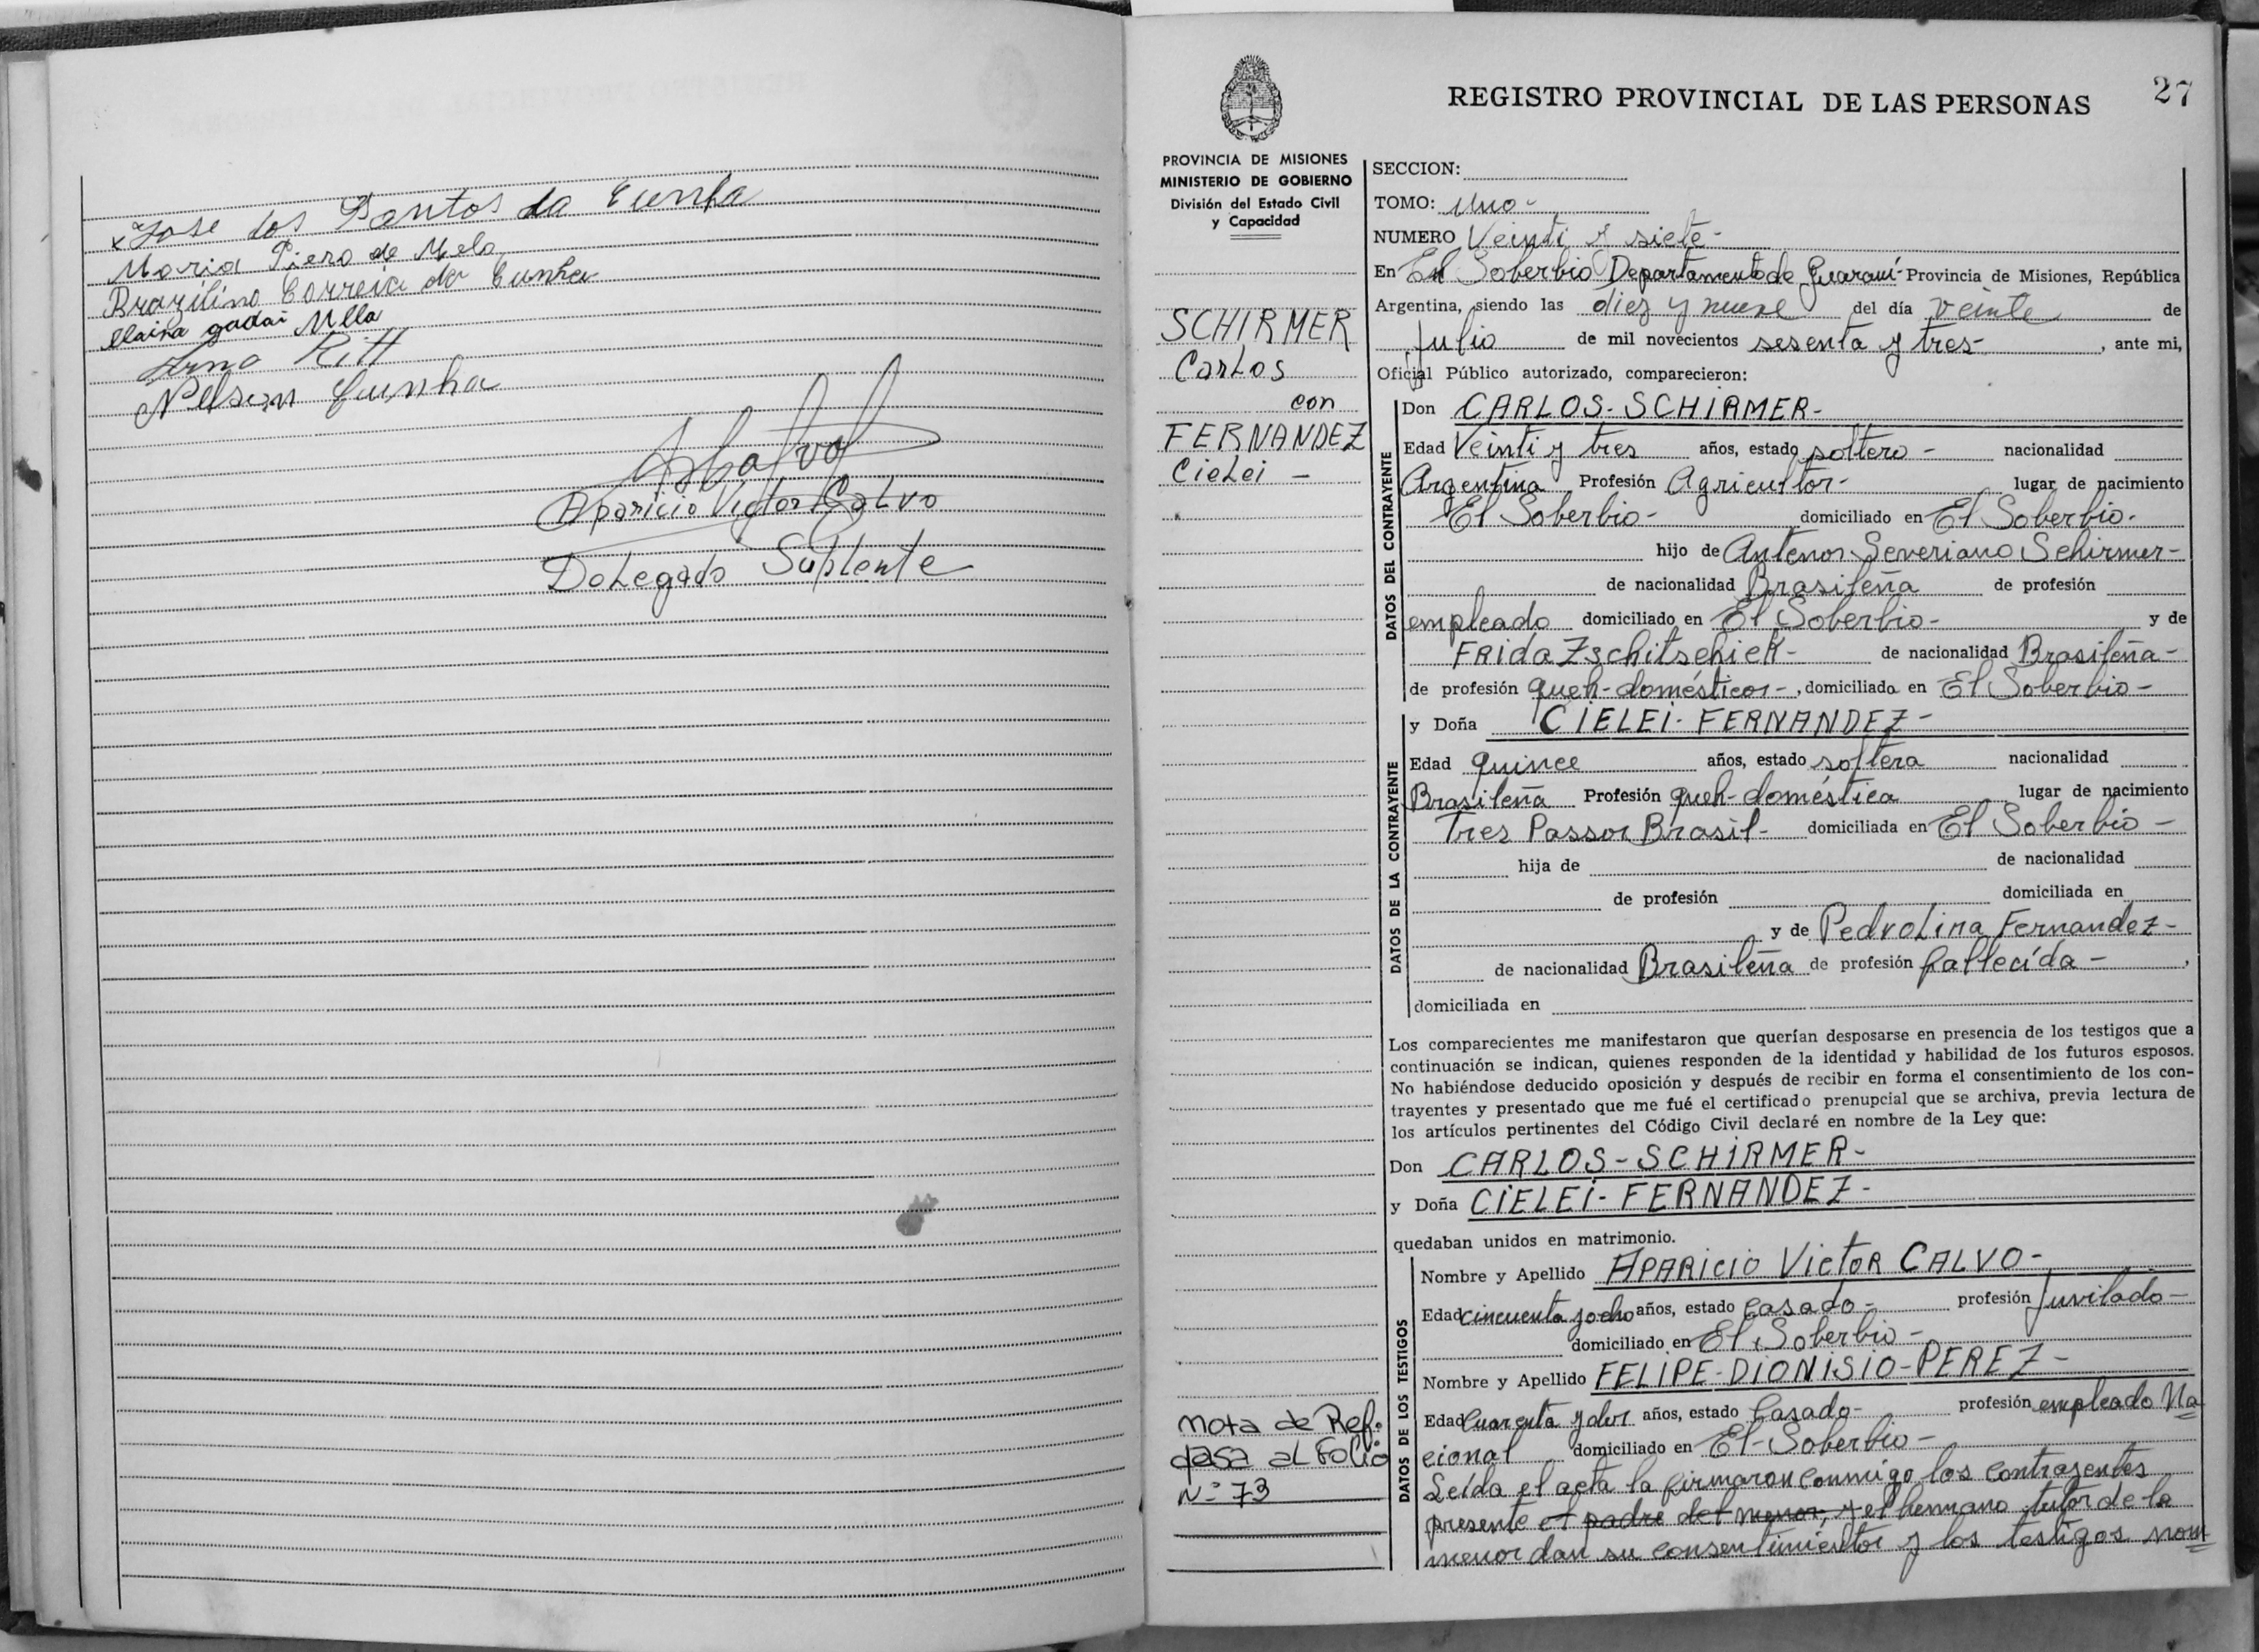 x Jose dos Santos da Cunha
Maria Piero de Melo
Brazilino Correia da Cunha
Elaira Mello
Ritt
Nelson Cunha
Aparicio Victor Calvo
Delegado Suplente
27
REGISTRO PROVINCIAL DE LAS PERSONAS
PROVINCIA DE MISIONES
MINISTERIO DE GOBIERNO
División del Estado Civil
y Capacidad
SCHIRMER
Carlos
con
FERNANDEZ
CieLei -
Nota de Ref.
pasa al Folio
Nº 73
SECCION:
TOMO: uno-
NUMERO Veinti y siete-
En El Soberbio Departamento de Guaraní- Provincia de Misiones, República
Argentina, siendo las diez y nueve del día veinte de
Julio de mil novecientos sesenta y tres- , ante mi,
Oficial Público autorizado, comparecieron:
DATOS DEL CONTRAYENTE
Don CARLOS-SCHIRMER-
Edad Veinti y tres años, estado soltero- nacionalidad
Argentina Profesión Agricultor- lugar de nacimiento
El Soberbio- domiciliado en El Soberbio.
hijo de Antenor Severiano Schirmer-
de nacionalidad Brasileña de profesión
empleado domiciliado en El Soberbio- y de
FRida Zschitschiek- de nacionalidad Brasileña-
de profesión queh-domésticos- , domiciliada en El Soberbio-
DATOS DE LA CONTRAYENTE
y Doña CIELEI-FERNANDEZ-
Edad quince años, estado soltera nacionalidad
Brasileña Profesión queh-doméstica lugar de nacimiento
Tres Passos Brasil- domiciliada en El Soberbio-
hija de de nacionalidad
de profesión domiciliada en
y de PedroLina Fernandez-
de nacionalidad Brasileña de profesión fallecída- ,
domiciliada en
Los comparecientes me manifestaron que querían desposarse en presencia de los testigos que a
continuación se indican, quienes responden de la identidad y habilidad de los futuros esposos.
No habiéndose deducido oposición y después de recibir en forma el consentimiento de los con-
trayentes y presentado que me fué el certificado prenupcial que se archiva, previa lectura de
los artículos pertinentes del Código Civil declaré en nombre de la Ley que:
Don CARLOS-SCHIRMER-
y Doña CIELEI-FERNANDEZ-
quedaban unidos en matrimonio.
DATOS DE LOS TESTIGOS
Nombre y Apellido APARICIO VICTOR CALVO-
Edad cincuenta y ocho años, estado casado- profesión Juvilado-
domiciliado en El Soberbio-
Nombre y Apellido FELIPE-DIONISIO-PEREZ-
Edad cuarenta y dos años, estado Casado- profesión empleado Na
cional domiciliado en El-Soberbio-
Leída el acta la firmaron conmigo los contrayentes
presente el padre del menor, y el hermano tutor de la
menor dan su consentimiento y los testigos nom